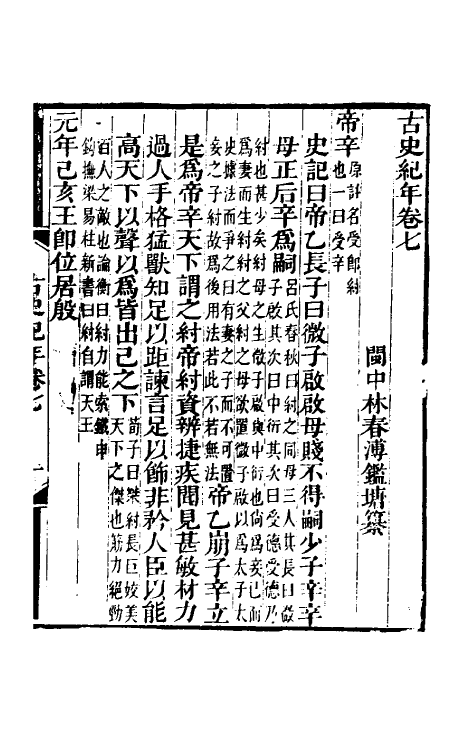 古史紀年卷七
閩中林春溥鑑塘纂
帝辛原註名受即紂
也一曰受辛
史記曰帝乙長子曰微子啟啟母賤不得嗣少子辛辛
母正后辛爲嗣呂氏春秋曰紂之同母三人其長曰微
子啟其次曰中衍其次曰受德受德乃
紂也甚少矣紂母之生微子啟與中衍也尙爲妾已而
爲妻而生紂紂之父紂之母欲置微子啟以爲太子太
史據法而爭之曰有妻之子而不可置
妾之子紂故爲後用法若此不若無法帝乙崩子辛立
是爲帝辛天下謂之紂帝紂資辨捷疾聞見甚敏材力
過人手格猛獸知足以距諫言足以飾非矜人臣以能
高天下以聲以爲皆出己之下荀子曰桀紂長巨姣美
天下之傑也筋力絕勁
百人之敵也論衡曰紂力能索鐵申
鈎撫梁易柱新書曰紂自謂天王
元年己亥王卽位居殷
古史紀年卷七
一